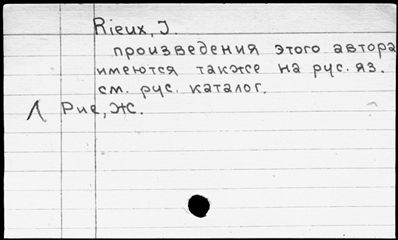 Rieux, J.
произведения этого автора
имеются также на рус. яз.
см. рус. каталог.
Рие, Ж.